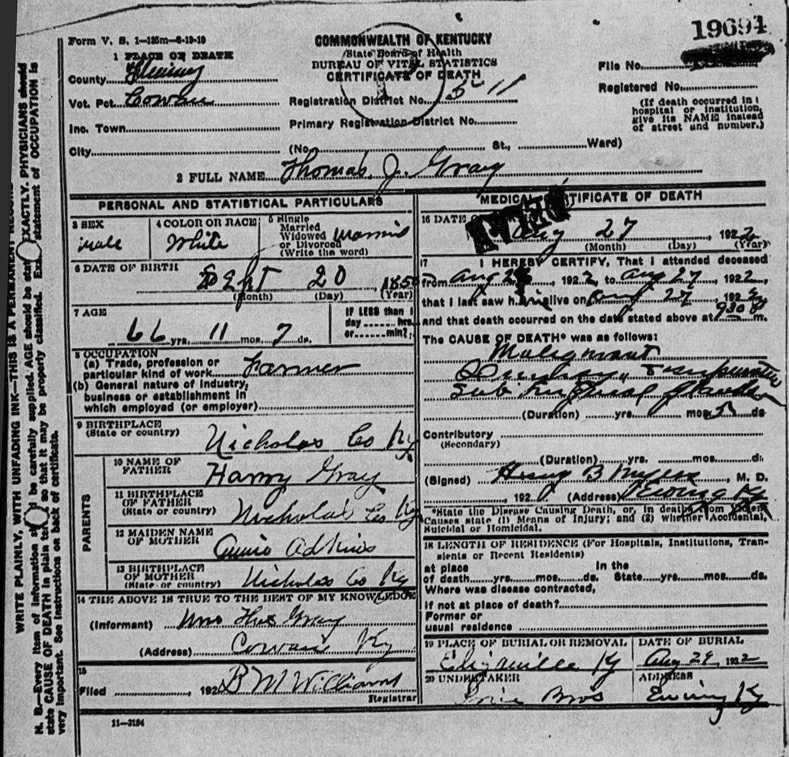 19694
Form V. S. 1-125m-6-19-19
COMMONWEALTH OF KENTUCKY
State Board of Health
BUREAU OF VITAL STATISTICS
CERTIFICATE OF DEATH
File No.
Registered No.
(If death occurred in a hospital or institution, give its NAME instead of street and number.)
1 PLACE OF DEATH
County Fleming
Vot. Pct. Cowan
Registration District No. 511
Inc. Town
Primary Registration District No.
City (No. St., Ward)
2 FULL NAME Thomas J. Gray
PERSONAL AND STATISTICAL PARTICULARS
3 SEX male
4 COLOR OR RACE White
5 Single Married Widowed or Divorced (Write the word)
6 DATE OF BIRTH Sept 20 185
(Month) (Day) (Year)
7 AGE 66 yrs. 11 mos. 7 ds.
IF LESS than 1 day hrs. or min?
8 OCCUPATION
(a) Trade, profession or particular kind of work Farmer
(b) General nature of industry, business or establishment in which employed (or employer)
9 BIRTHPLACE (State or country) Nicholas Co Ky
PARENTS
10 NAME OF FATHER Harry Gray
11 BIRTHPLACE OF FATHER (State or country) Nicholas Co Ky
12 MAIDEN NAME OF MOTHER Adkins
13 BIRTHPLACE OF MOTHER (State or country) Nicholas Co Ky
14 THE ABOVE IS TRUE TO THE BEST OF MY KNOWLEDGE
(Informant) Mrs Thos Gray
(Address) Cowan Ky
15
Filed 192 B M Williams
Registrar
11-3184
MEDICAL CERTIFICATE OF DEATH
16 DATE OF Aug 27 1922
(Month) (Day) (Year)
17 I HEREBY CERTIFY, That I attended deceased
from Aug 1922 to Aug 27 1922,
that I last saw him alive on Aug 27 1922
and that death occurred on the date stated above at 930 m.
The CAUSE OF DEATH* was as follows:
Malignant
(Duration) yrs. mos. 5 ds.
Contributory (Secondary)
(Duration) yrs. mos. ds.
(Signed) B Myers M. D.
, 192 (Address) Ewing Ky
*State the Disease Causing Death, or, in deaths from Violent Causes state (1) Means of Injury; and (2) whether Accidental, Suicidal or Homicidal.
18 LENGTH OF RESIDENCE (For Hospitals, Institutions, Transients or Recent Residents)
at place of death yrs. mos. ds. In the State yrs. mos. ds.
Where was disease contracted,
if not at place of death?
Former or usual residence
19 PLACE OF BURIAL OR REMOVAL Elizaville Ky
DATE OF BURIAL Aug 29, 1922
20 UNDERTAKER Bros
ADDRESS Ewing Ky
WRITE PLAINLY, WITH UNFADING INK—THIS IS A PERMANENT RECORD
N. B.—Every item of information should be carefully supplied. AGE should be stated EXACTLY. PHYSICIANS should state CAUSE OF DEATH in plain terms, so that it may be properly classified. Exact statement of OCCUPATION is very important. See instructions on back of certificate.